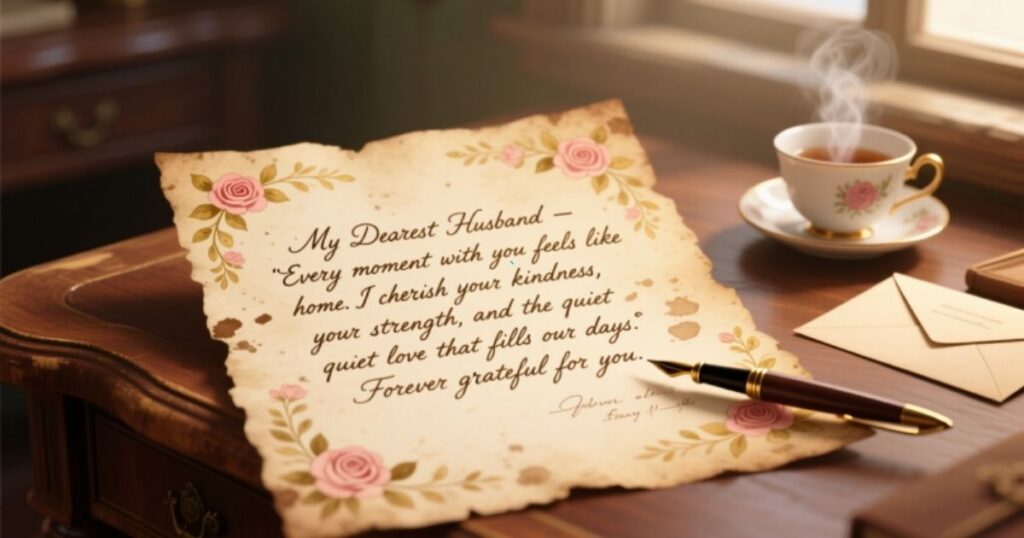 My Dearest Husband —
"Every moment with you feels like
home. I cherish your kindness,
your strength, and the quiet
quiet love that fills our days."
Forever grateful for you.